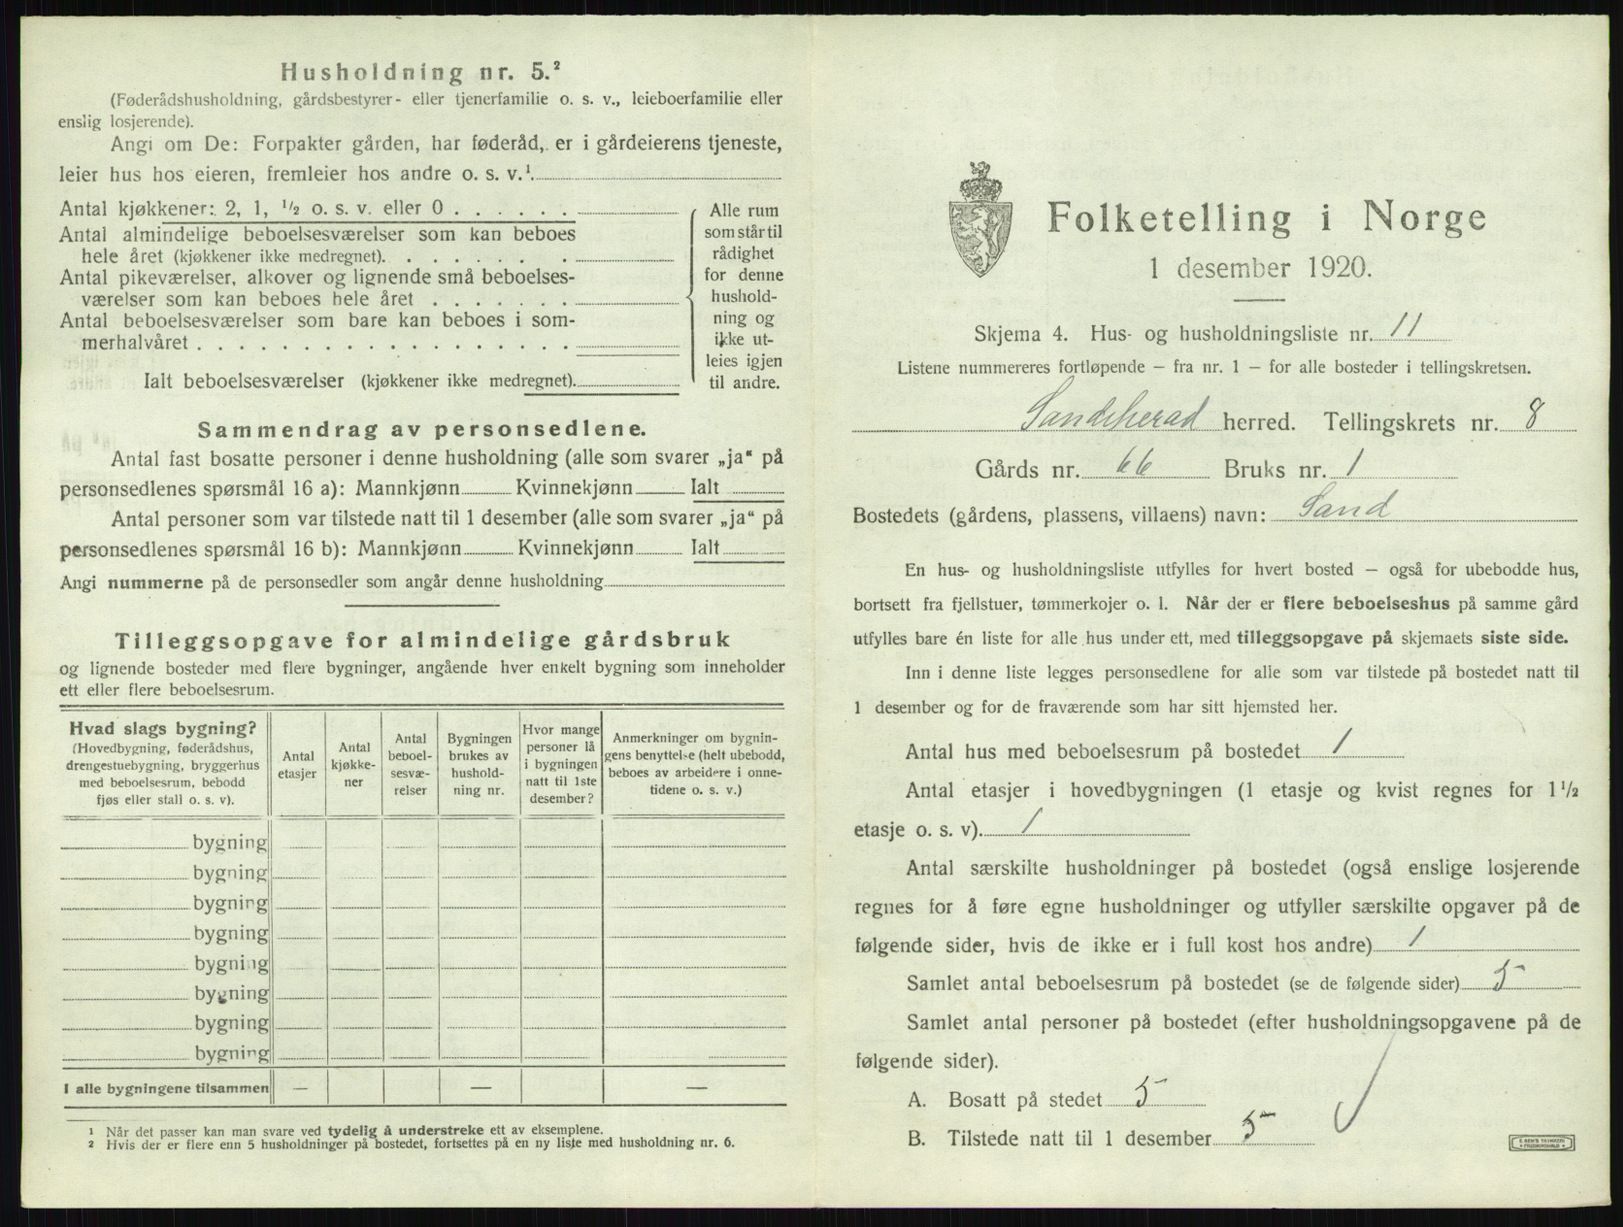 Husholdning nr. 5.²
(Føderådshusholdning, gårdsbestyrer- eller tjenerfamilie o. s. v., leieboerfamilie eller
enslig losjerende).
Angi om De: Forpakter gården, har føderåd, er i gårdeierens tjeneste,
leier hus hos eieren, fremleier hos andre o. s. v.¹
Antal kjøkkener: 2, 1, ½ o. s. v. eller 0
Antal almindelige beboelsesværelser som kan beboes
hele året (kjøkkener ikke medregnet).
Antal pikeværelser, alkover og lignende små beboelses-
værelser som kan beboes hele året
Antal beboelsesværelser som bare kan beboes i som-
merhalvåret
Ialt beboelsesværelser (kjøkkener ikke medregnet).
Alle rum
som står til
rådighet
for denne
hushold-
ning og
ikke ut-
leies igjen
til andre.
Sammendrag av personsedlene.
Antal fast bosatte personer i denne husholdning (alle som svarer „ja“ på
personsedlenes spørsmål 16 a): Mannkjønn Kvinnekjønn Ialt
Antal personer som var tilstede natt til 1 desember (alle som svarer „ja“ på
personsedlenes spørsmål 16 b): Mannkjønn Kvinnekjønn Ialt
Angi nummerne på de personsedler som angår denne husholdning
Tilleggsopgave for almindelige gårdsbruk
og lignende bosteder med flere bygninger, angående hver enkelt bygning som inneholder
ett eller flere beboelsesrum.
Hvad slags bygning?
(Hovedbygning, føderådshus,
drengestuebygning, bryggerhus
med beboelsesrum, bebodd
fjøs eller stall o. s. v).
Antal
etasjer
Antal
kjøkke-
ner
Antal
beboel-
sesvæ-
relser
Bygningen
brukes av
hushold-
ning nr.
Hvor mange
personer lå
i bygningen
natt til 1ste
desember?
Anmerkninger om bygnin-
gens benyttelse (helt ubebodd,
beboes av arbeidere i onne-
tidene o. s. v.)
bygning
bygning
bygning
bygning
bygning
bygning
bygning
bygning
I alle bygningene tilsammen — — —
¹ Når det passer kan man svare ved tydelig å understreke ett av eksemplene.
² Hvis der er flere enn 5 husholdninger på bostedet, fortsettes på en ny liste med husholdning nr. 6.
Folketelling i Norge
1 desember 1920.
Skjema 4. Hus- og husholdningsliste nr. 11
Listene nummereres fortløpende — fra nr. 1 — for alle bosteder i tellingskretsen.
Sandeherad herred. Tellingskrets nr. 8
Gårds nr. 66 Bruks nr. 1
Bostedets (gårdens, plassens, villaens) navn: Sand
En hus- og husholdningsliste utfylles for hvert bosted — også for ubebodde hus,
bortsett fra fjellstuer, tømmerkojer o. l. Når der er flere beboelseshus på samme gård
utfylles bare én liste for alle hus under ett, med tilleggsopgave på skjemaets siste side.
Inn i denne liste legges personsedlene for alle som var tilstede på bostedet natt til
1 desember og for de fraværende som har sitt hjemsted her.
Antal hus med beboelsesrum på bostedet 1
Antal etasjer i hovedbygningen (1 etasje og kvist regnes for 1½
etasje o. s. v). 1
Antal særskilte husholdninger på bostedet (også enslige losjerende
regnes for å føre egne husholdninger og utfyller særskilte opgaver på de
følgende sider, hvis de ikke er i full kost hos andre) 1
Samlet antal beboelsesrum på bostedet (se de følgende sider) 5
Samlet antal personer på bostedet (efter husholdningsopgavene på de
følgende sider).
A. Bosatt på stedet 5
B. Tilstede natt til 1 desember 5